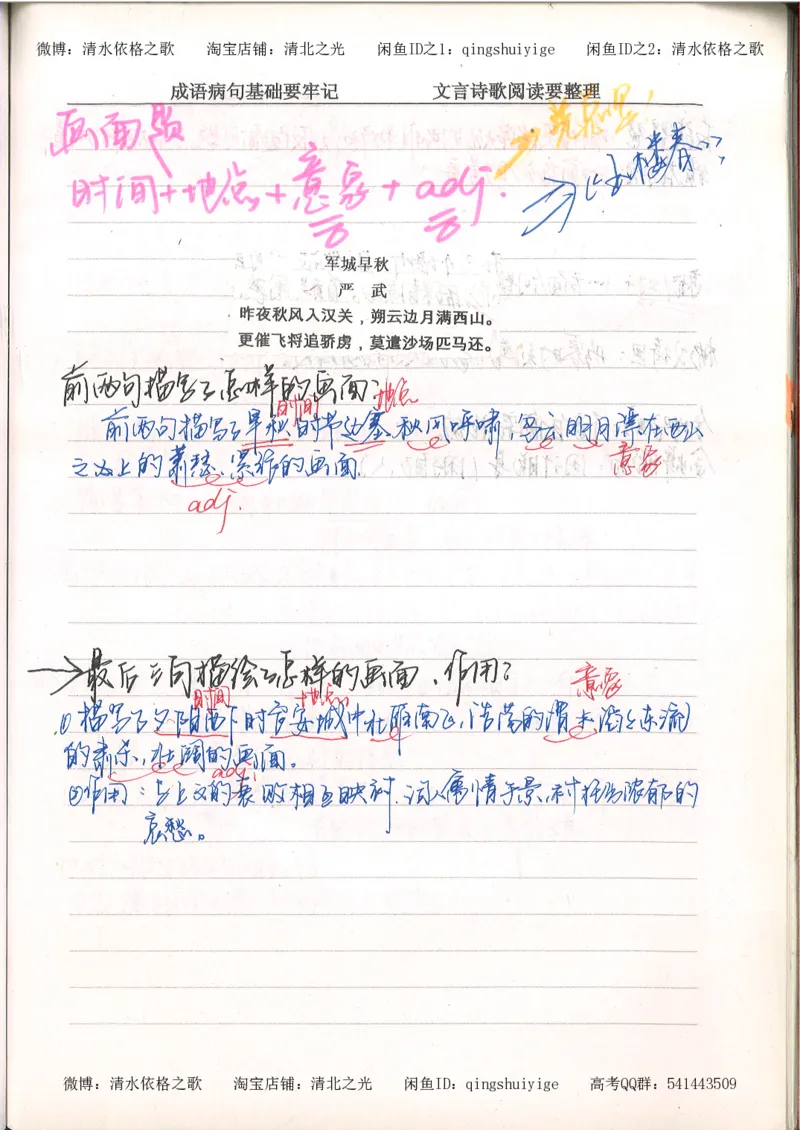 微博：清水依格之歌 淘宝店铺：清北之光 闲鱼ID之1：qingshuiyige 闲鱼ID之2：清水依格之歌
成语病句基础要牢记 文言诗歌阅读要整理
画面题
时间+地点+意象+adj.
玉楼春
军城早秋
严 武
昨夜秋风入汉关，朔云边月满西山。
更催飞将追骄虏，莫遣沙场匹马还。
前两句描写了怎样的画面？
时间 地点
前两句描写了早秋时节边塞秋风呼啸，寒云、明月浮在西山
之上的萧瑟、紧张的画面.
意象
adj.
最后三句描绘了怎样的画面、作用？
意象
时间 地点
①描写了夕阳西下时长安城中社雁南飞，浩荡的渭水滔滔东流
的肃杀、壮阔的画面。
adj.
②作用：与上文的衰败相互映衬.词人寓情于景,衬托出浓郁的
哀愁。
微博：清水依格之歌 淘宝店铺：清北之光 闲鱼ID：qingshuiyige 高考QQ群：541443509